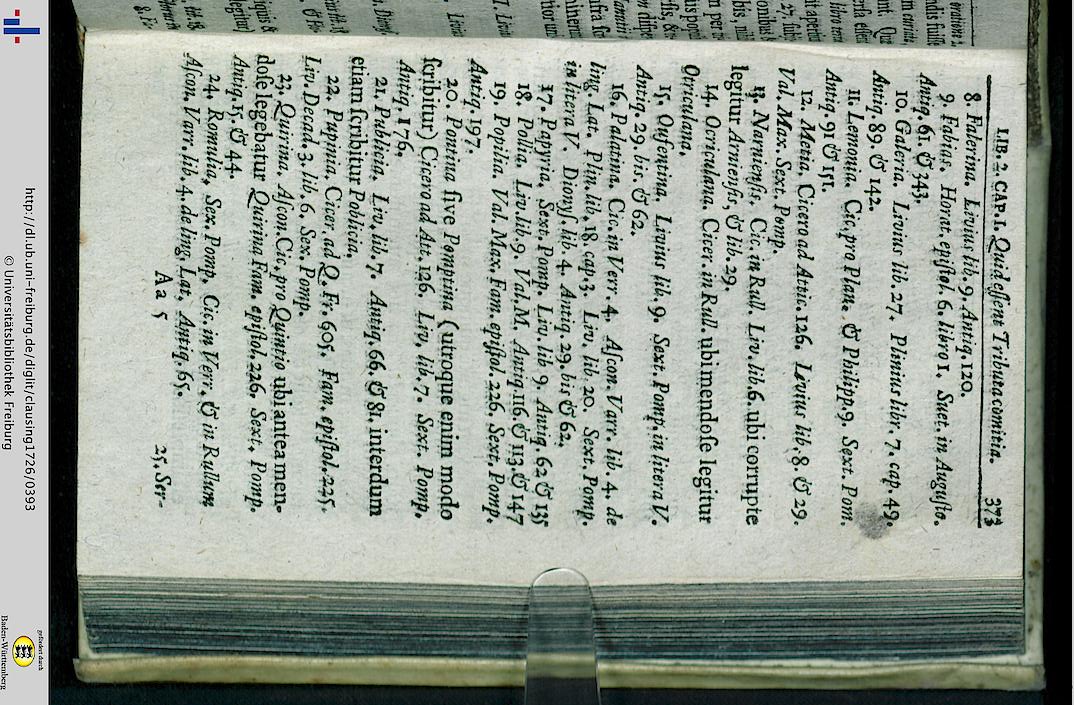 LIB 2. CAP. I. Quid essent Tributa comitia. 373
8. Falerina. Livius lib. 9. Antiq. 120.
9. Fabius. Horat. epistol. 6. libro 1. Suet. in Augusto.
Antiq. 61. & 343.
10. Galeria. Livius lib. 27. Plinius libr. 7. cap. 49.
Antiq. 89. & 142.
11. Lemonia. Cic. pro Planc. & Philipp. 9. Sext. Pom.
Antiq. 91 & 151.
12. Metia, Cicero ad Attic. 126. Livius lib. 8. & 29.
Val. Max. Sext. Pomp.
13. Narniensis. Cic. in Rull. Liv. lib. 6. ubi corrupte
legitur Arniensis, & lib. 29.
14. Ocriculana, Cicer. in Rull. ubi mendose legitur
Oriculana.
15. Oufentina, Livius lib. 9. Sext. Pomp. in litera V.
Antiq. 29. bis. & 62.
16. Palatina. Cic. in Verr. 4. Ascon. Varr. lib. 4. de
ling. Lat. Plin. lib. 18. cap. 3. Liv. lib. 20. Sext. Pomp.
in litera V. Dionys. lib. 4. Antiq. 29. bis & 62.
17. Papyria, Sext. Pomp. Liv. lib 9. Antiq. 62 & 135
18. Pollia, Liv. lib. 9. Val. M. Antiq. 116. & 113. & 147
19. Popilia, Val. Max. Fam. epistol. 226. Sext. Pomp.
Antiq. 197.
20. Pontina sive Pomptina (utroque enim modo
scribitur) Cicero ad Att. 126. Liv. lib. 7. Sext. Pomp.
Antiq. 176.
21. Publicia, Liv. lib. 7. Antiq. 66. & 81. interdum
etiam scribitur Poblicia.
22. Pupinia, Cicer. ad Q. Fr. 605. Fam. epistol. 225.
Liv. Decad. 3. lib. 6. Sex. Pomp.
23. Quirina, Ascon. Cic. pro Quintio ubi antea men-
dose legebatur Quirina Fam. epistol. 226. Sext. Pomp.
Antiq. 15. & 44.
24. Romulia, Sex. Pomp. Cic. in Verr. & in Rullum
Ascon. Varr. lib. 4. de ling. Lat. Antiq. 65.
Aa 5 25. Ser-
http://dl.ub.uni-freiburg.de/diglit/clausing1726/0393
© Universitätsbibliothek Freiburg
gefördert durch
Baden-Württemberg